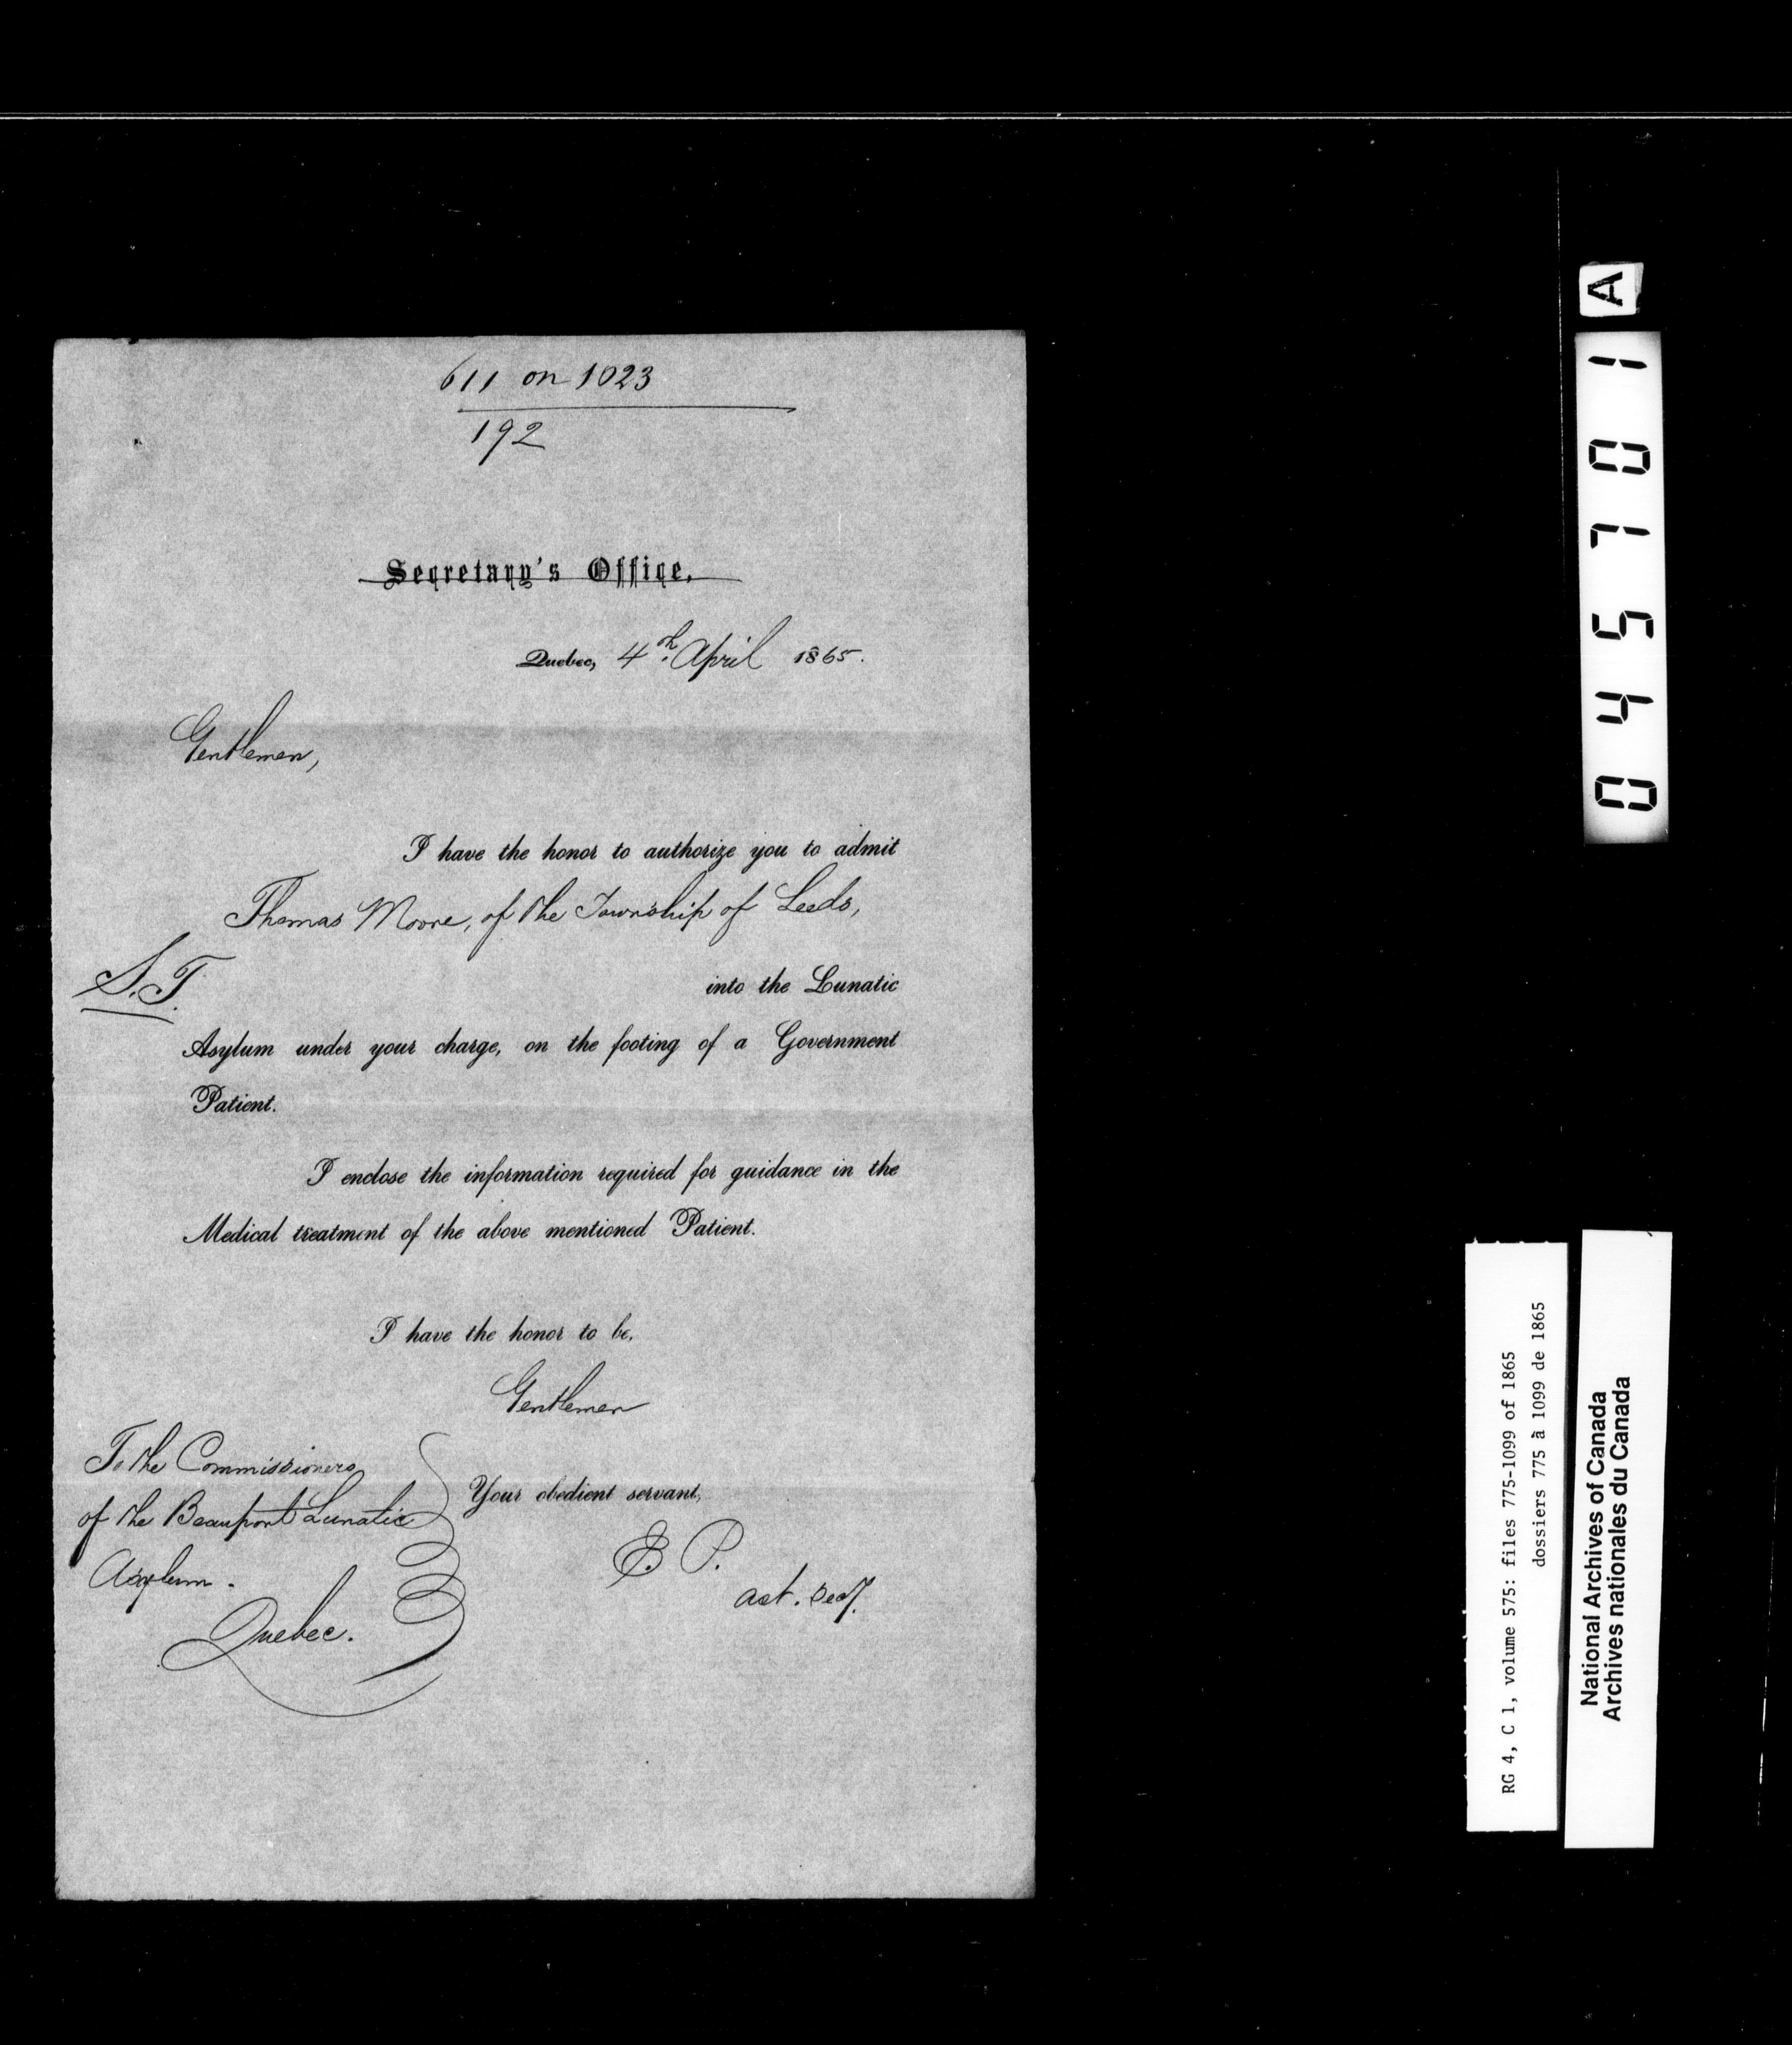 611 on 1023
192
Secretary's Office.
Quebec, 4th April 1865.
Gentlemen,
I have the honor to authorize you to admit
Thomas Moore, of the Township of Leeds,
S.T.
into the Lunatic
Asylum under your charge, on the footing of a Government
Patient.
I enclose the information required for guidance in the
Medical treatment of the above mentioned Patient.
I have the honor to be,
Gentlemen
Your obedient servant,
E. P.
act. Secy.
To the Commissioners
of the Beauport Lunatic
Asylum.
Quebec.
A
045701
RG 4, C 1, volume 575: files 775-1099 of 1865
dossiers 775 à 1099 de 1865
National Archives of Canada
Archives nationales du Canada